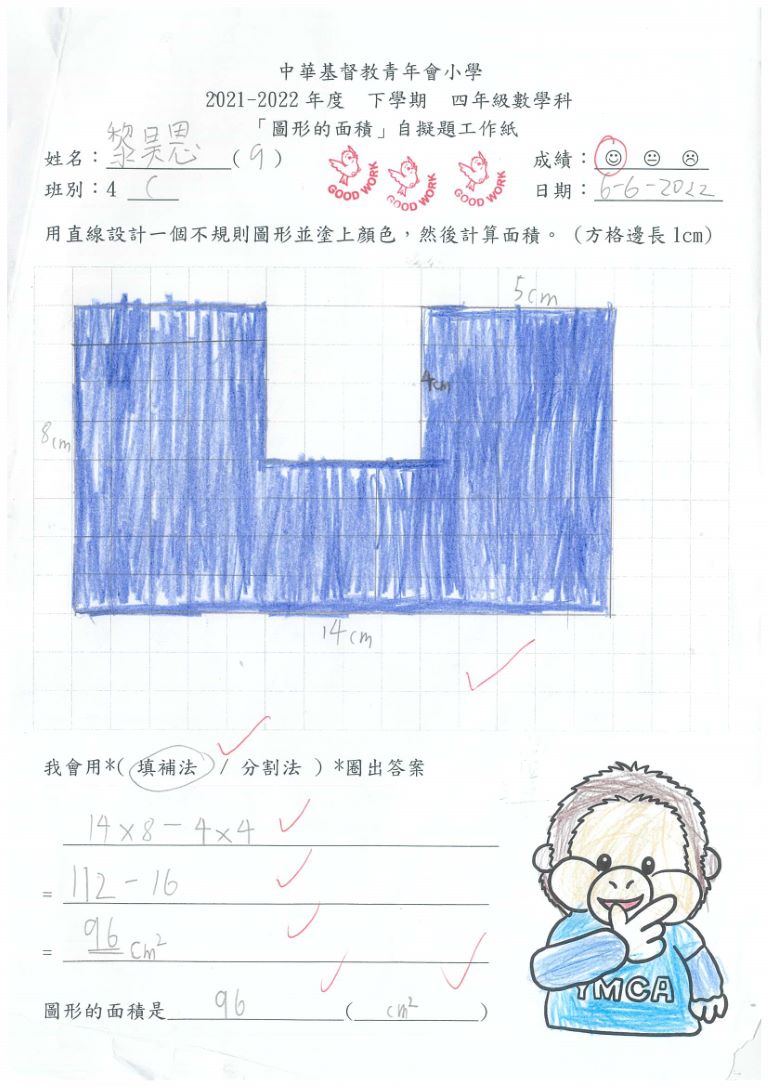 中華基督教青年會小學
2021-2022 年度 下學期 四年級數學科
「圖形的面積」自擬題工作紙
姓名：黎昊恩(9) 成績：
GOOD WORK GOOD WORK GOOD WORK
班別：4 C 日期：6-6-2022
用直線設計一個不規則圖形並塗上顏色，然後計算面積。(方格邊長 1cm)
5cm
4cm
8cm
14cm
我會用*( 填補法 / 分割法 ) *圈出答案
14×8-4×4
= 112-16
= 96 cm²
圖形的面積是 96 ( cm² )
YMCA